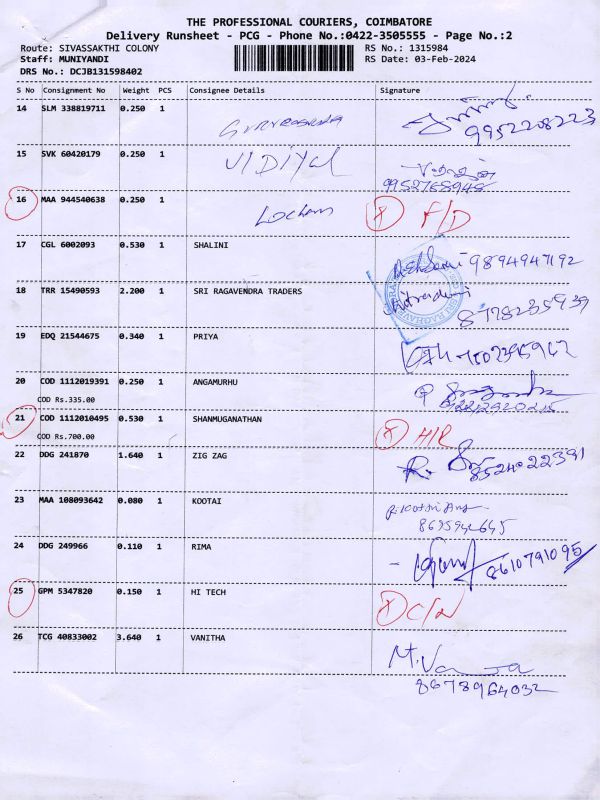 THE PROFESSIONAL COURIERS, COIMBATORE
Delivery Runsheet - PCG - Phone No.:0422-3505555 - Page No.:2
Route: SIVASSAKTHI COLONY RS No.: 1315984
Staff: MUNIYANDI RS Date: 03-Feb-2024
DRS No.: DCJB131598402
S No Consignment No Weight PCS Consignee Details Signature
14 SLM 338819711 0.250 1
9952208223
15 SVK 60420179 0.250 1 VIDIYal
9952768948
16 MAA 944540638 0.250 1 F/D
17 CGL 6002093 0.530 1 SHALINI 9894947192
18 TRR 15490593 2.200 1 SRI RAGAVENDRA TRADERS
8778235939
19 EDQ 21544675 0.340 1 PRIYA
20 COD 1112019391 0.250 1 ANGAMURHU
COD Rs.335.00
21 COD 1112010495 0.530 1 SHANMUGANATHAN
COD Rs.700.00
22 DDG 241870 1.640 1 ZIG ZAG
23 MAA 108093642 0.080 1 KOOTAI
24 DDG 249966 0.110 1 RIMA 8610791095
25 GPM 5347820 0.150 1 HI TECH
26 TCG 40833002 3.640 1 VANITHA
8678964032